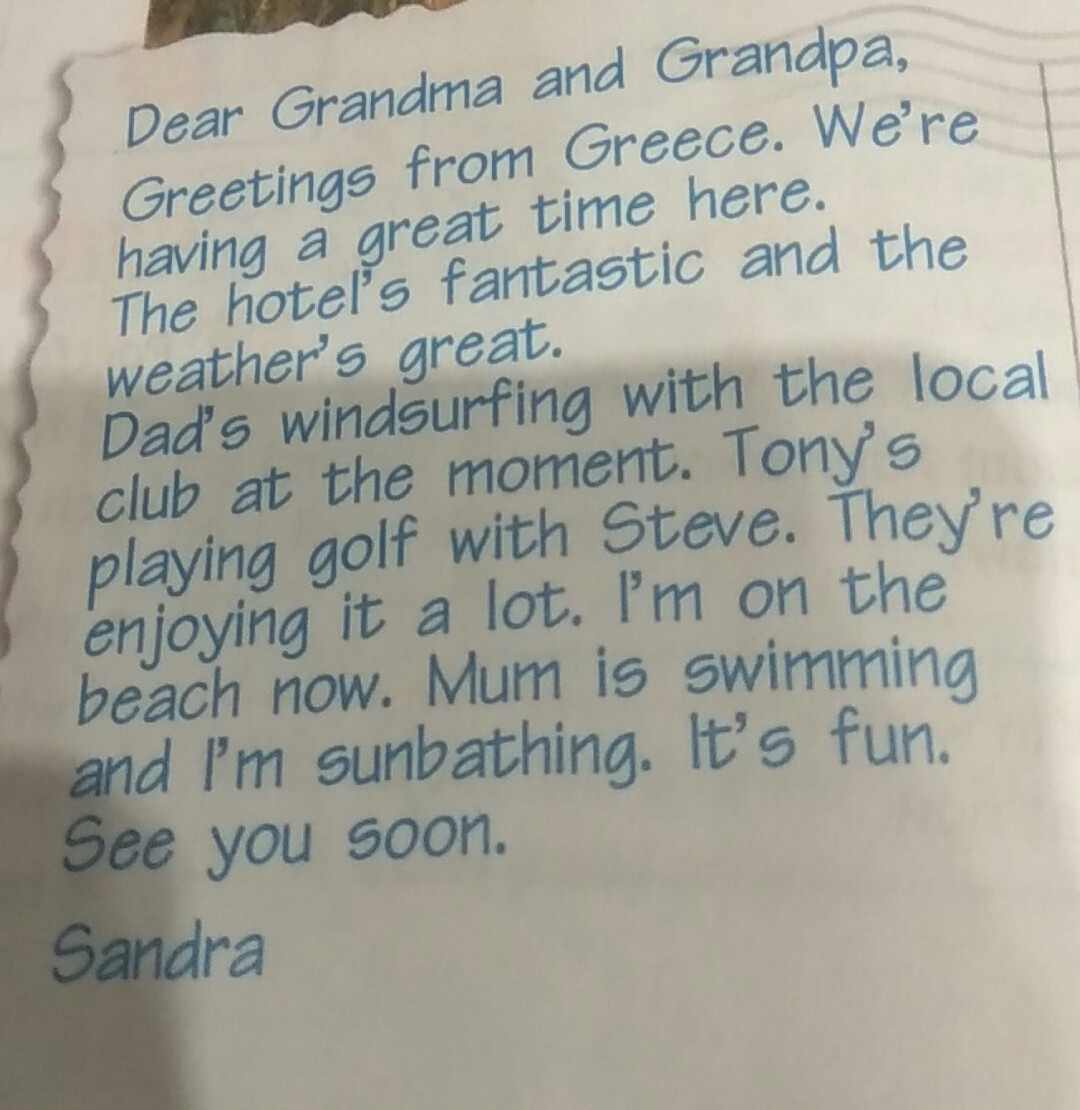 Dear Grandma and Grandpa,
Greetings from Greece. We're
having a great time here.
The hotel's fantastic and the
weather's great.
Dad's windsurfing with the local
club at the moment. Tony's
playing golf with Steve. They're
enjoying it a lot. I'm on the
beach now. Mum is swimming
and I'm sunbathing. It's fun.
See you soon.
Sandra